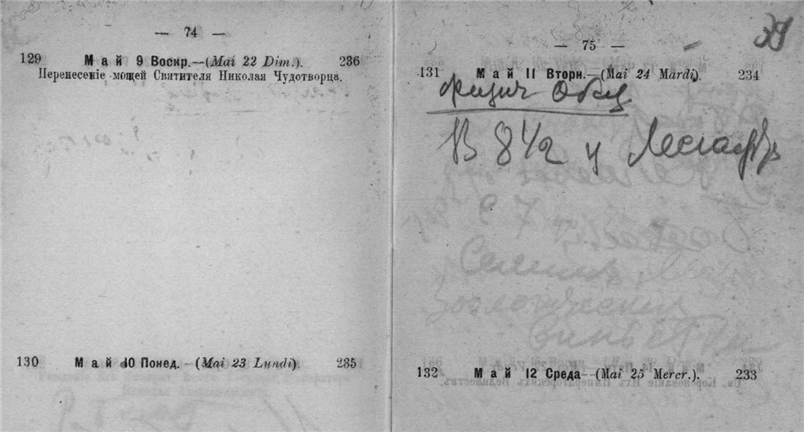 — 74 —
129 Май 9 Воскр.—(Mai 22 Dim.). 236
Перенесеніе мощей Святителя Николая Чудотворца.
130 Май 10 Понед. —(Mai 23 Lundi). 235
39
— 75 —
131 Май 11 Вторн.—(Mai 24 Mardi). 234
Физич Общ
В 8 1/2 у
132 Май 12 Среда—(Mai 25 Mercr.). 233